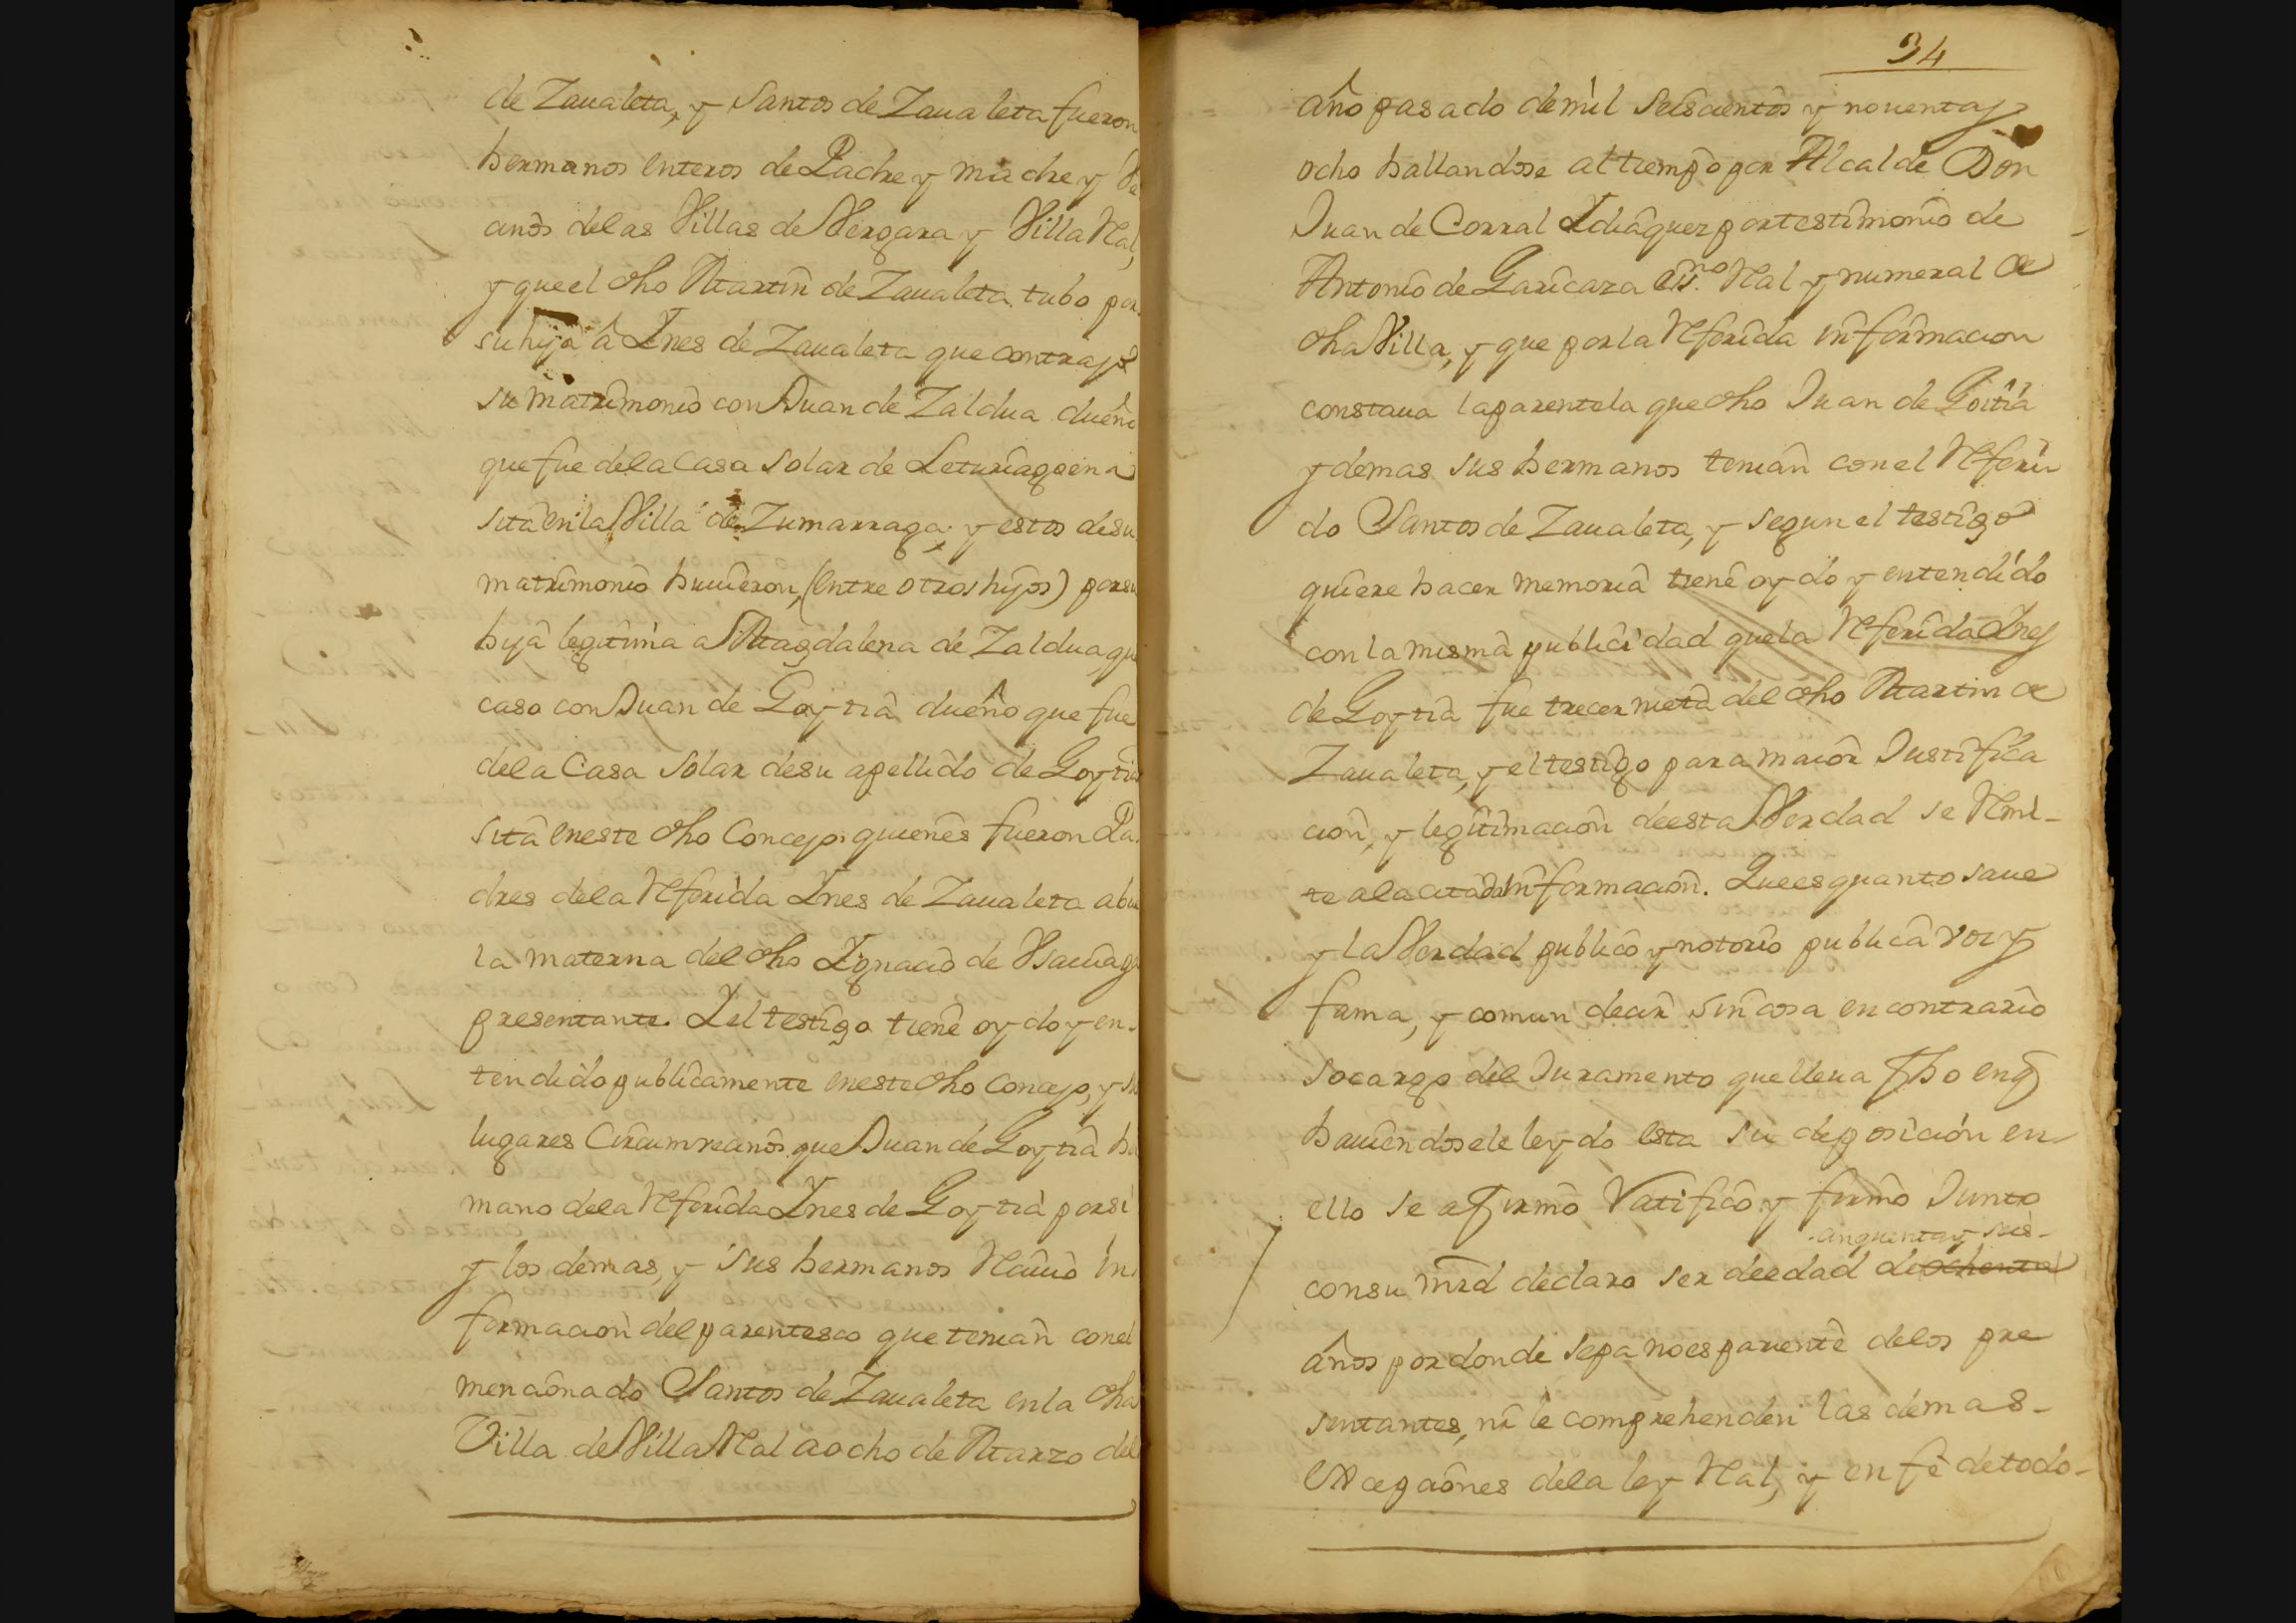 de Zaualeta, y Santos de Zaualeta fueron
hermanos enteros de Padre y madre y Ve
cinos delas Villas de Vergara y Villa Ral,
y que el dho Martin de Zaualeta tubo por
su hija â Ynes de Zaualeta que contrajo
su matrimonio con Juan de Zaldua dueño
que fue dela Casa Solar de Leturiagoena
sita en la Villa de Zumarraga, y estos de su
matrimonio huuieron, (entre otros hijos) por su
hija legitima a Magdalena de Zaldua que
caso con Juan de Goytia dueño que fue
dela Casa Solar desu apellido de Goytia
sita en este dho Concejo quienes fueron Pa
dres dela Referida Ynes de Zaualeta abue
la materna del dho Ygnacio de
presentante. Y el testigo tiene oydo y en-
tendido publicamente en este dho Concejo, y su
lugares Circumvecinos que Juan de Goytia her
mano dela Referida Ynes de Goytia por si
y los demas, y sus hermanos Reciuio in
formacion del parentesco que tenian con el
mencionado Santos de Zaualeta en la dha
Villa de Villa Real a ocho de Marzo del
34
año pasado de mil Seiscientos y nouenta y
ocho hallandose al tiempo por Alcalde Don
Juan de Corral Ydiaquez por testimonio de
Antonio de Garicaza essno Ral y numeral de
dha Villa, y que por la Referida informacion
constaua la parentela que dho Juan de Goitia
y demas sus hermanos tenian con el Referi
do Santos de Zaualeta, y segun el testigo
quiere hacer memoria tiene oydo y entendido
con la misma publicidad que la Referida Ynes
de Goytia fue trecer nieta del dho Martin de
Zaualeta, y el testigo para maior Justifica
cion, y legitimacion de esta Verdad se Remi-
te a la citada informacion. Que es quanto saue
y la Verdad publico y notorio publica voz y
fama, y comun decir sin cosa en contrario
so cargo del Juramento que lleua fho en q̃
hauiendosele leydo esta su deposicion en-
ello se afirmo Ratifico y firmo Junto
cinquenta y seis-
con su mrd declaro ser de edad de ochenta
años por donde sepa no es pariente delos pre
sentantes, ni le comprehenden las demas-
excepciones dela ley Ral, y en fe de todo-